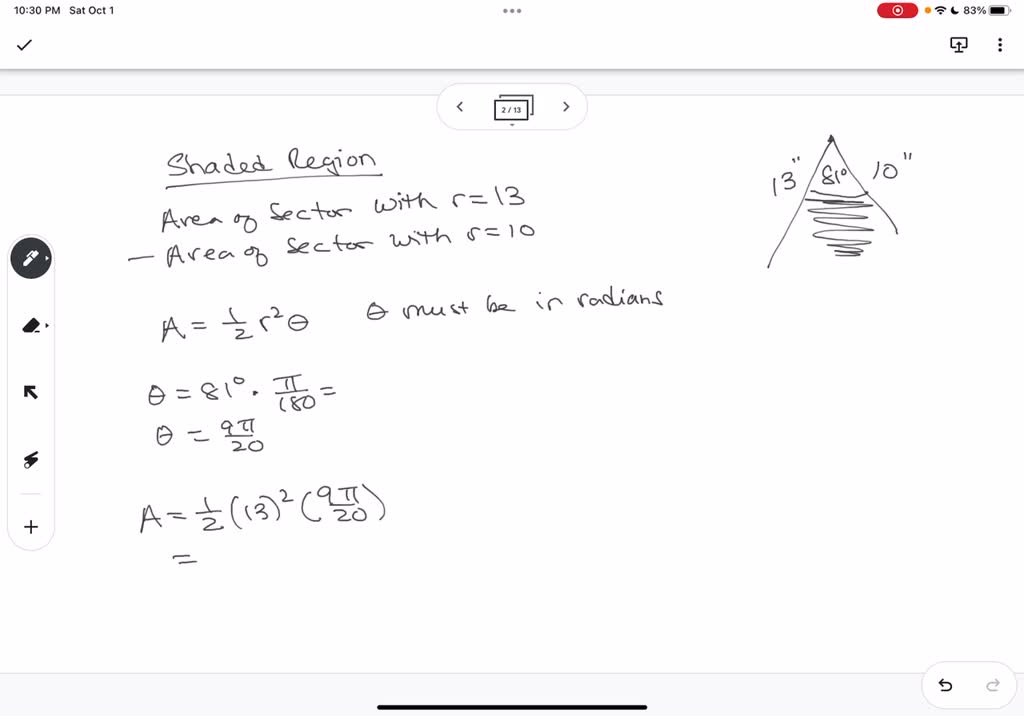 10:30 PM Sat Oct 1
83%
2 / 13
Shaded Region
Area of Sector with r=13
— Area of Sector with r=10
A = 1/2 r² θ θ must be in radians
θ = 81° · π/180 =
θ = 9π/20
A = 1/2 (13)² (9π/20)
=
13" 81° 10"